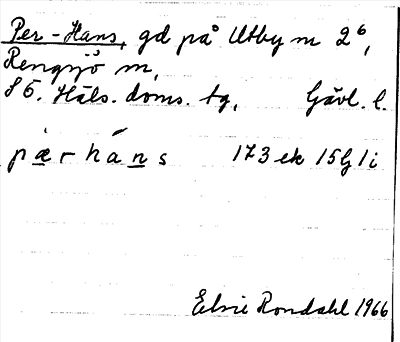 Per-Hans, gd på Utby m 2⁶,
Rengsjö m,
S ö. Häls. doms. tg, Gävl. l.
pærháns 173 ek 15G1i
Elsie Rondahl 1966